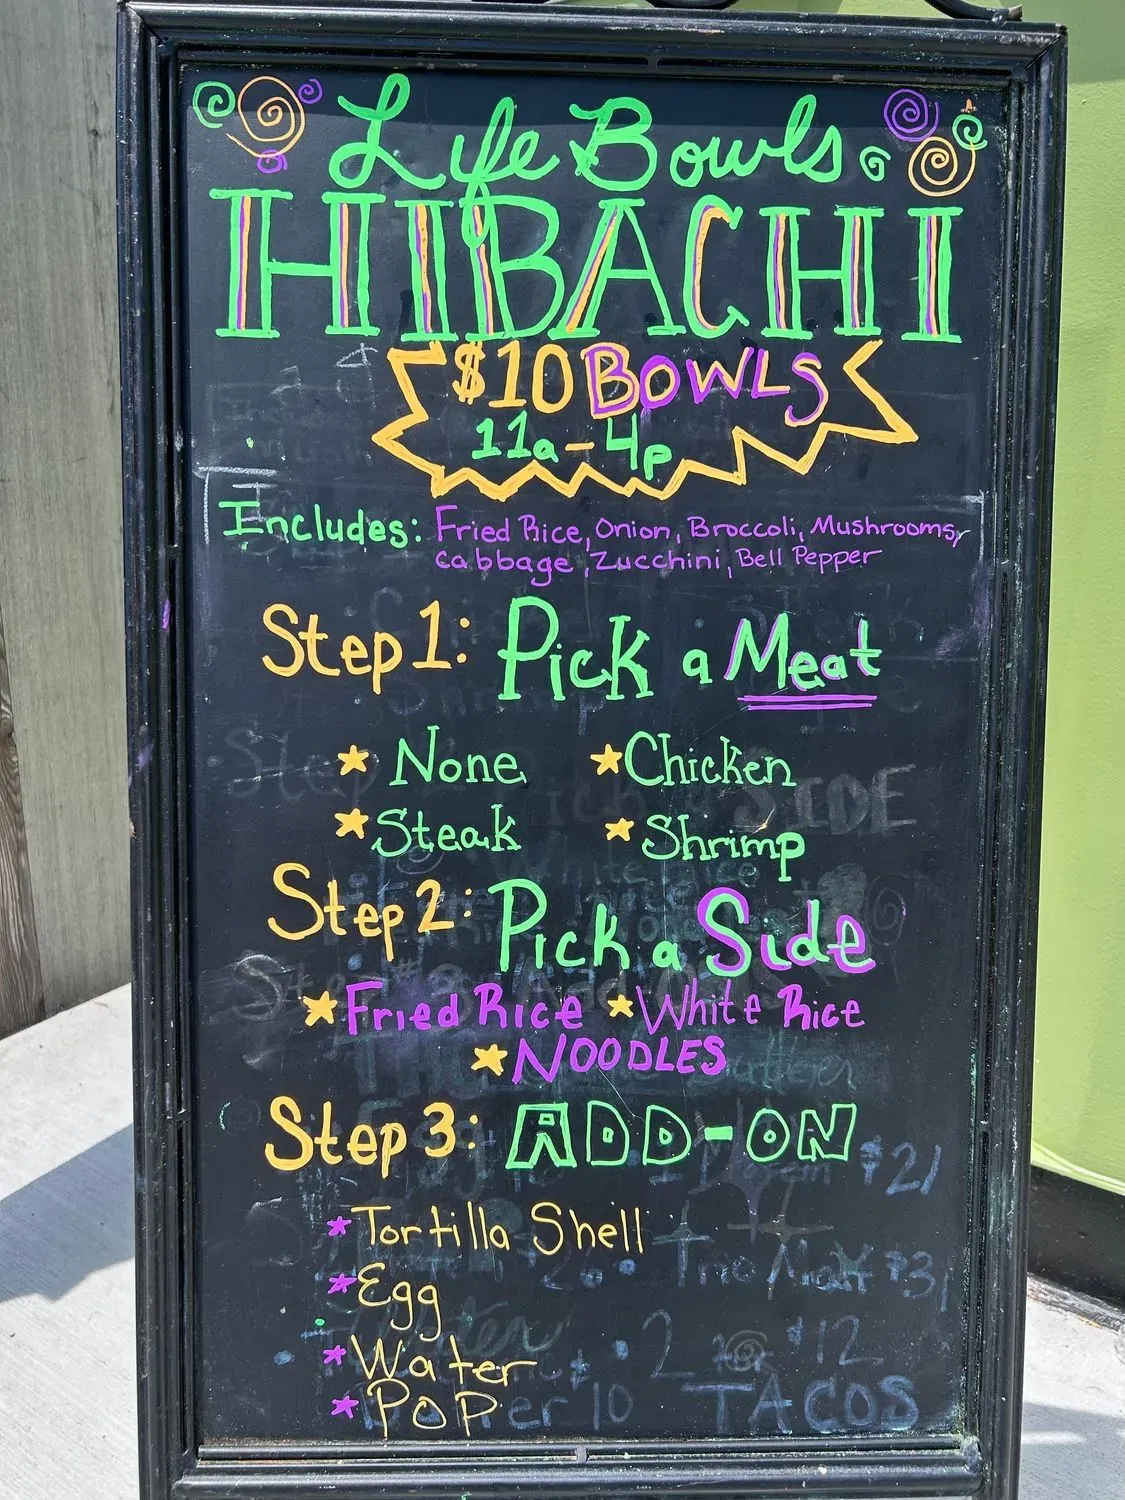 Life Bowls
HIBACHI
$10 BOWLS
11a-4p
Includes: Fried Rice, Onion, Broccoli, Mushrooms,
cabbage, Zucchini, Bell Pepper
Step 1: Pick a Meat
★ None ★ Chicken
★ Steak ★ Shrimp
Step 2: Pick a Side
★ Fried Rice ★ White Rice
★ NOODLES
Step 3: ADD-ON
* Tortilla Shell
* Egg
* Water
* POP
SIDE
$21
$12
TACOS